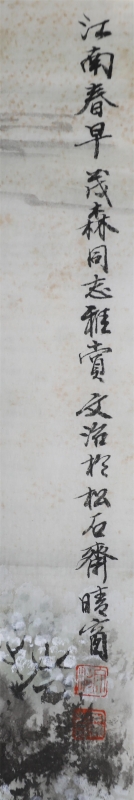 江南春早茂森同志雅赏文治於松石齋晴窗